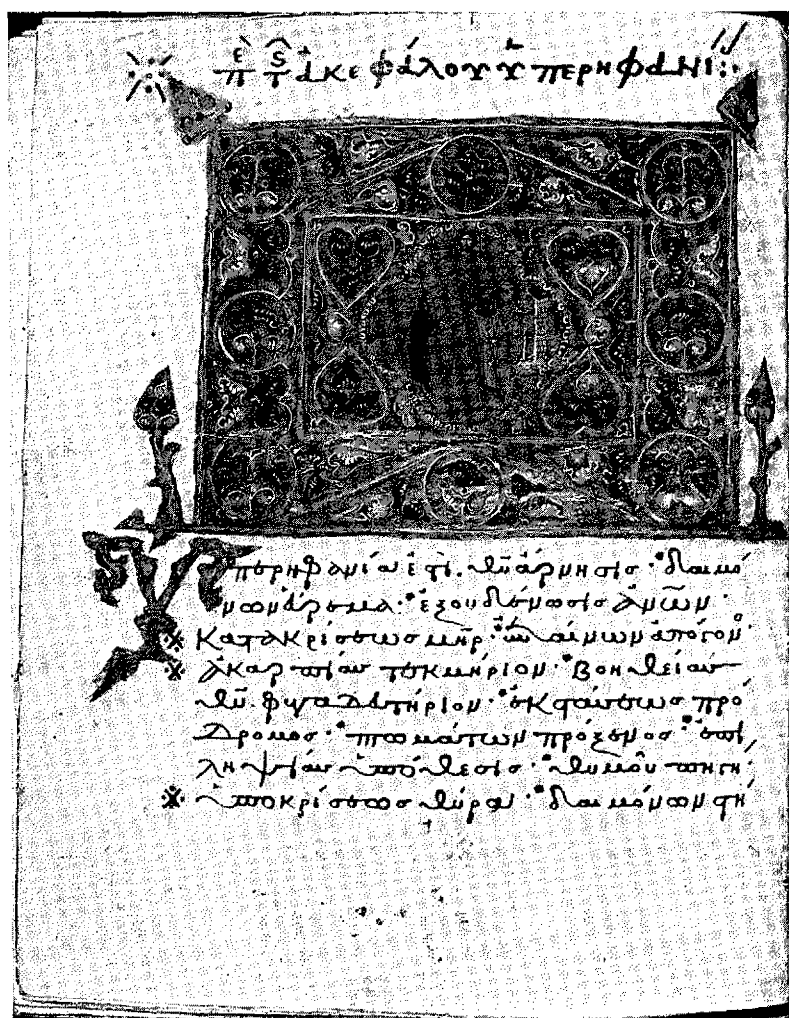 πε τς ἀκεφάλου ὑπερηφανί:
Ὑπερηφανία ἐστὶ. θῦ ἄρνησις· δαιμό
νων εὕρεμα· ἐξουδένωσις ἀνῶν·
κατακρίσεως μηρ· ἐπαίνων ἀπόγον·
ἀκαρπίας τεκμήριον· βοηθείας
θῦ φυγαδευτήριον· ἐκστάσεως πρό
δρομος· πτωμάτων πρόξενος· ἐπι
ληψίας ὑπόθεσις· θυμοῦ πηγή·
ὑποκρίσεως θύρα· δαιμόνων στή